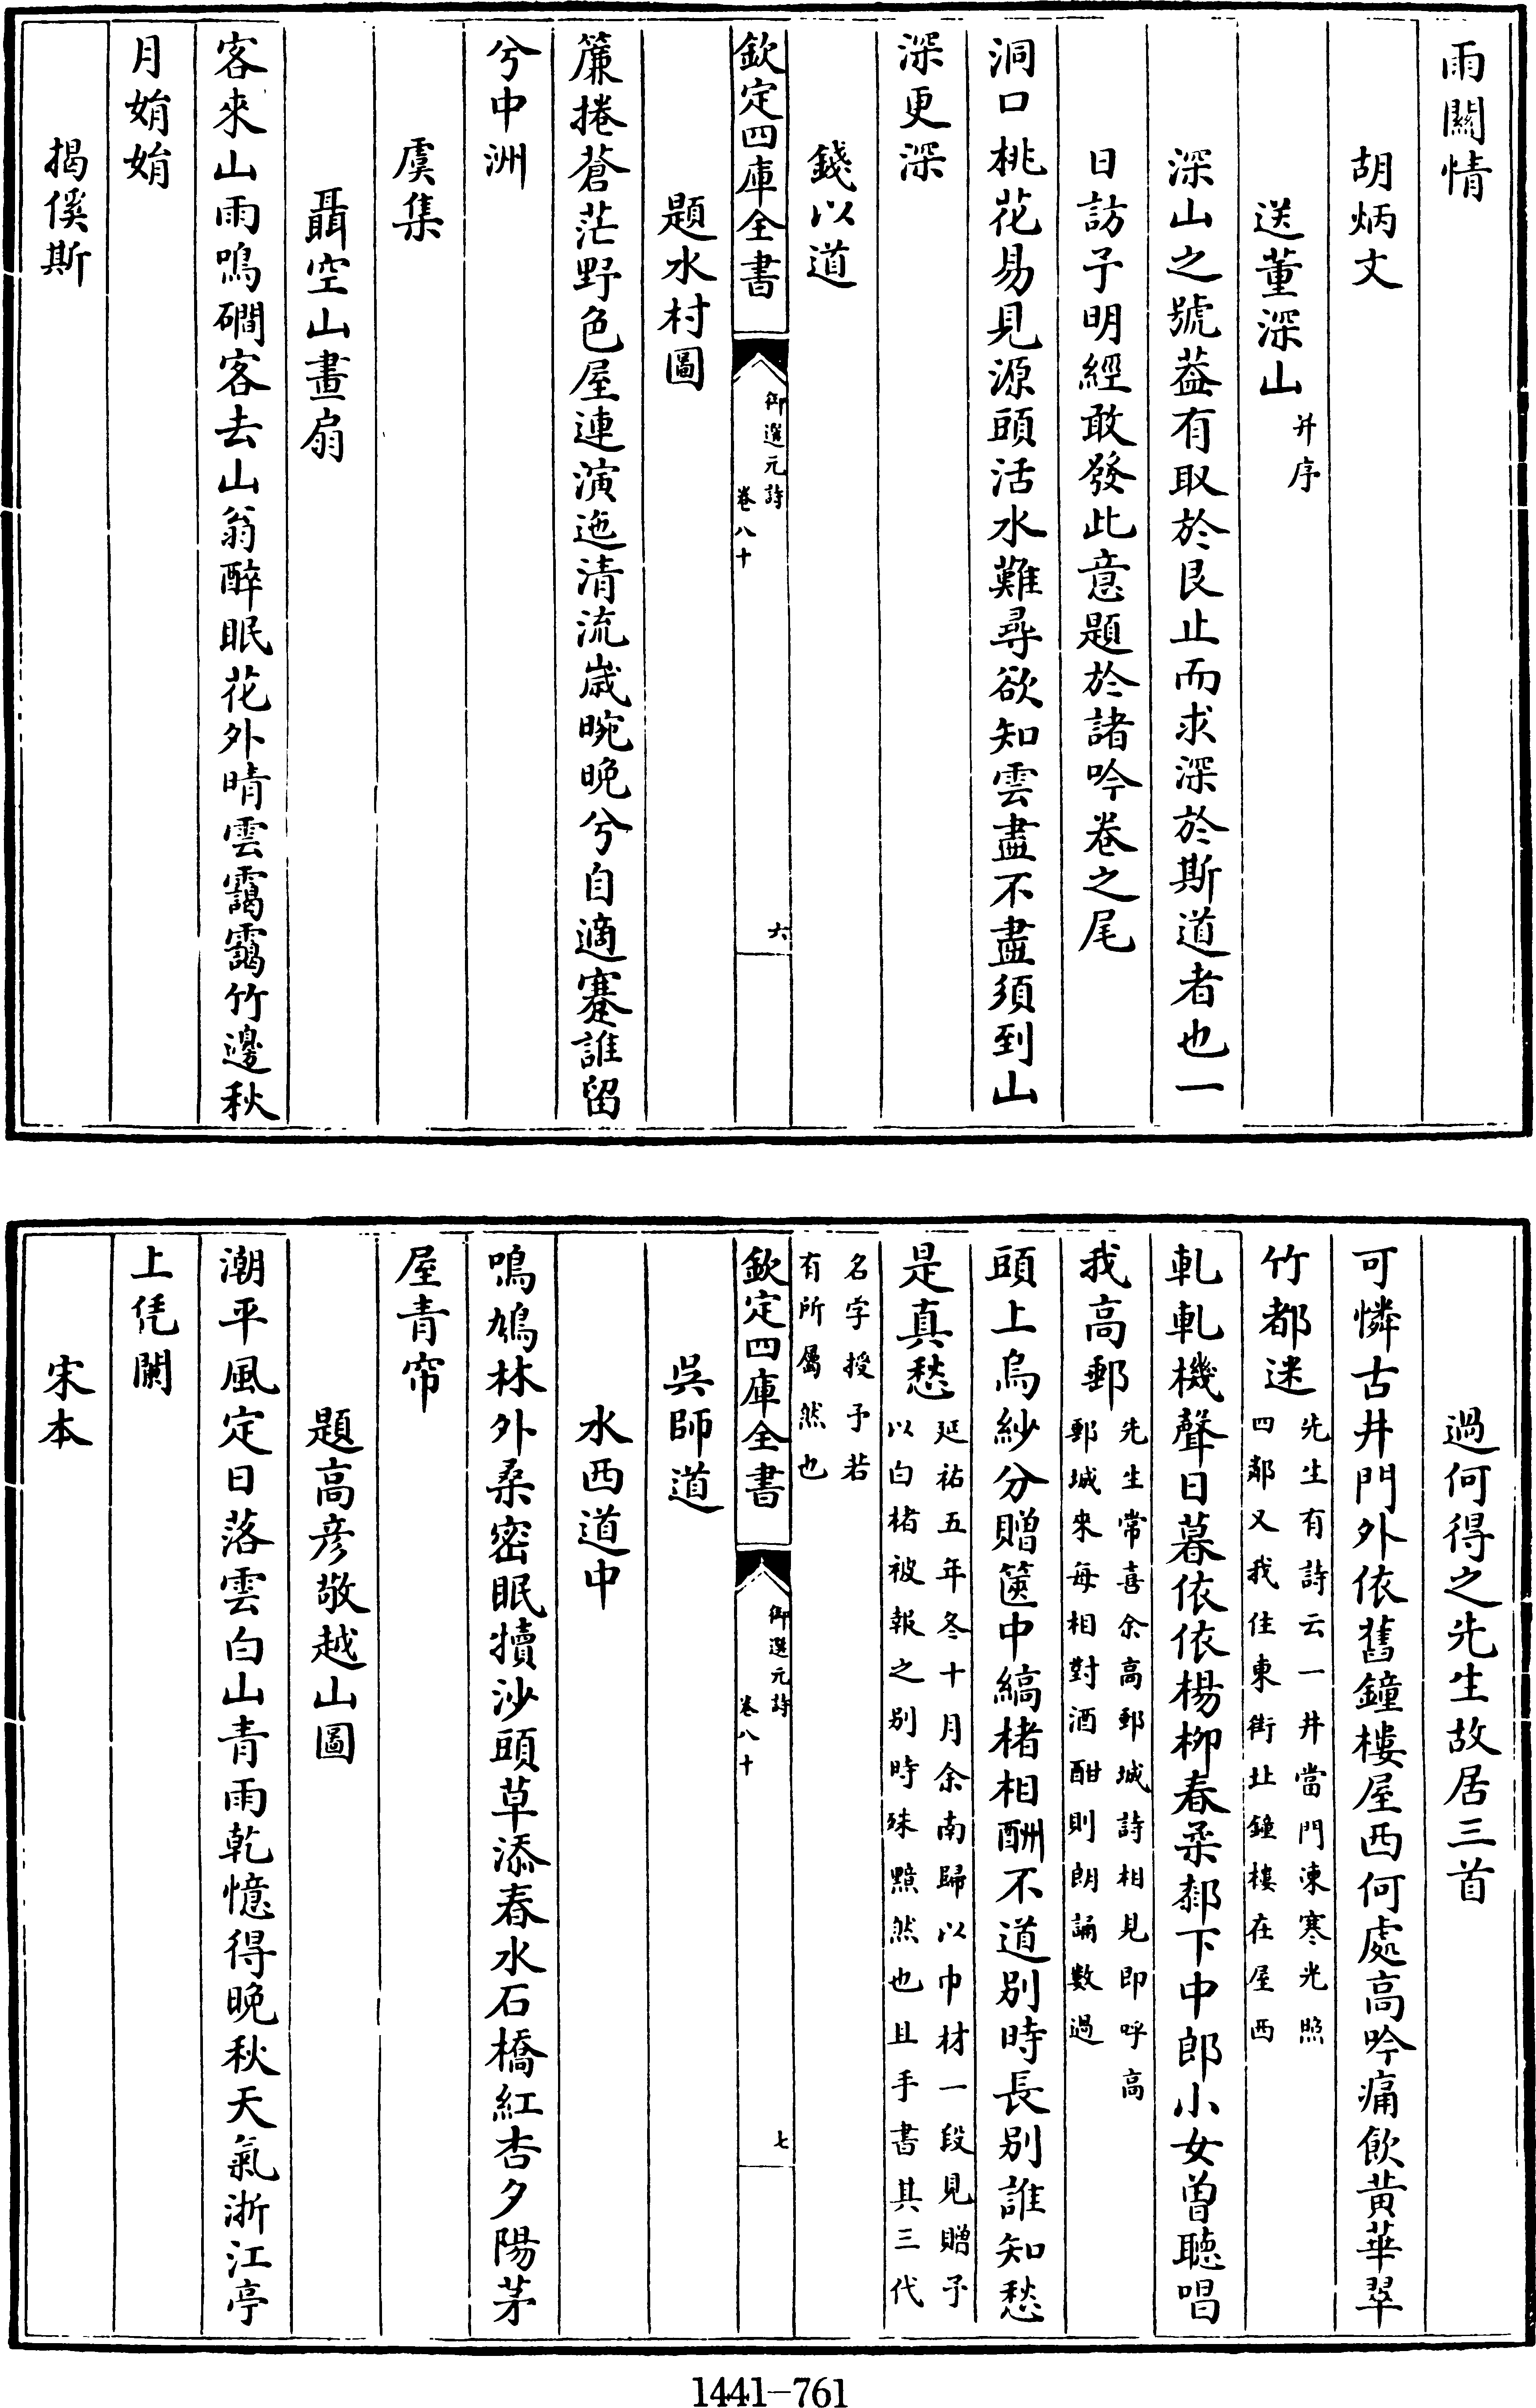 雨關情
胡炳文
送董深山并序
深山之號葢有取於艮止而求深於斯道者也一
日訪予明經敢發此意題於諸吟卷之尾
洞口桃花易見源頭活水難尋欲知雲盡不盡須到山
深更深
錢以道
欽定四庫全書
御選元詩
卷八十
六
題水村圖
簾捲蒼茫野色屋連演迤清流歲晼晚兮自適蹇誰留
兮中洲
虞集
聶空山畫扇
客來山雨鳴磵客去山翁醉眠花外晴雲靄靄竹邊秋
月娟娟
揭傒斯
過何得之先生故居三首
可憐古井門外依舊鐘樓屋西何處高吟痛飲黃華翠
竹都迷
先生有詩云一井當門凍寒光照
四鄰又我住東街北鐘樓在屋西
軋軋機聲日暮依依楊柳春柔郗下中郎小女曾聽唱
我高郵
先生常喜余高郵城詩相見即呼高
郵城來每相對酒酣則朗誦數過
頭上烏紗分贈篋中縞楮相酬不道别時長别誰知愁
是真愁
延祐五年冬十月余南歸以巾材一段見贈予
以白楮被報之别時殊黯然也且手書其三代
名字授予若
有所屬然也
欽定四庫全書
御選元詩
卷八十
七
吳師道
水西道中
鳴鳩林外桑密眠犢沙頭草添春水石橋紅杏夕陽茅
屋青帘
題高彥敬越山圖
潮平風定日落雲白山青雨乾憶得晚秋天氣浙江亭
上凭闌
宋本
1441-761